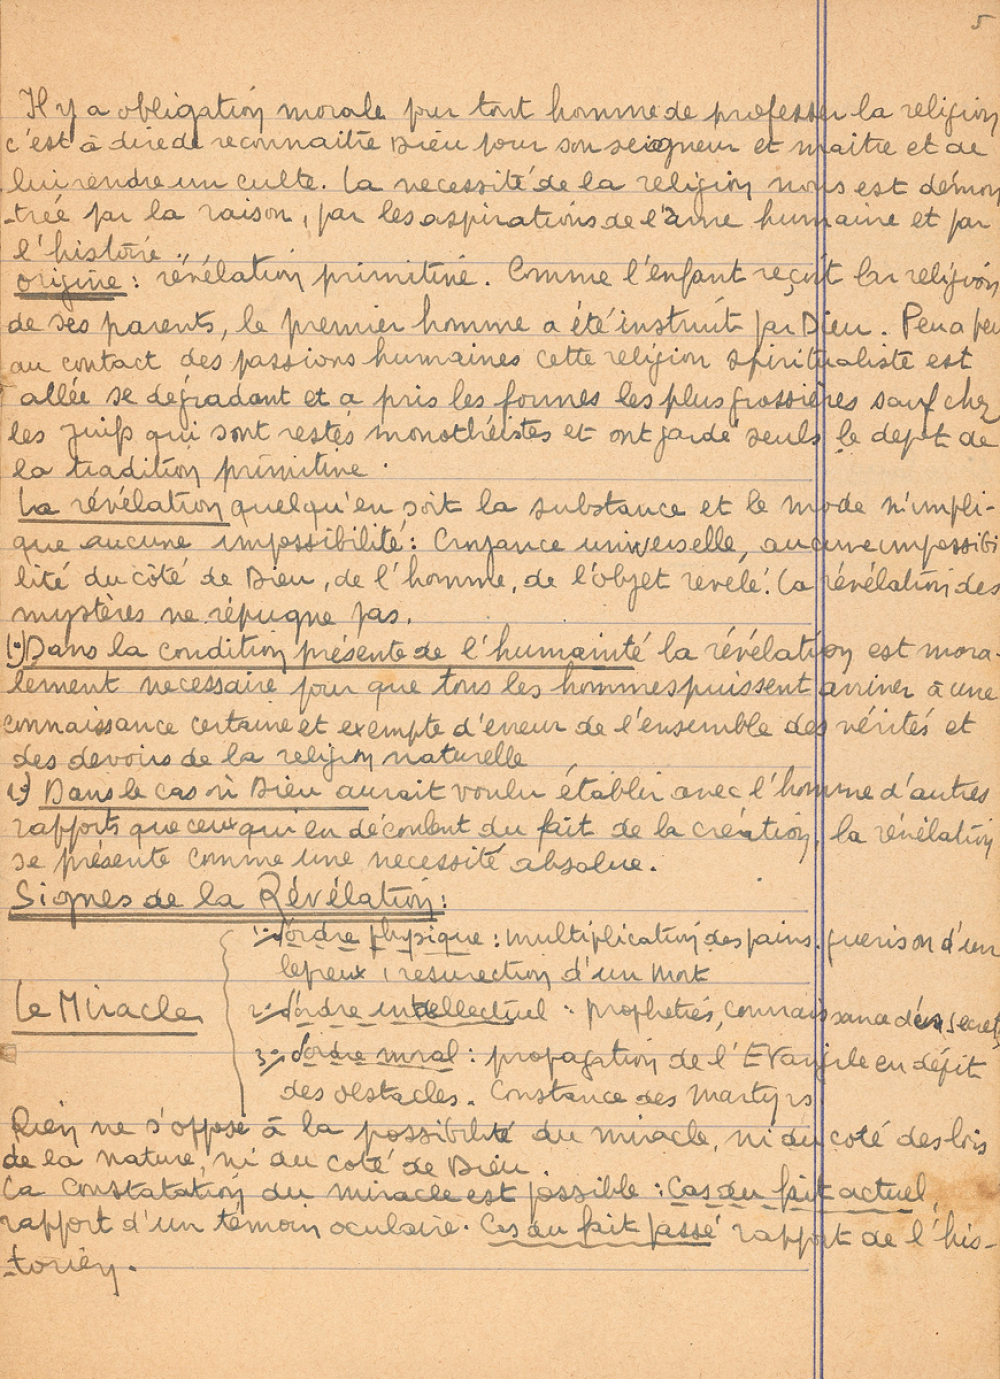 5
Il y a obligation morale pour tout homme de professer la religion
c'est à dire de reconnaitre Dieu pour son seigneur et maitre et de
lui rendre un culte. La necessité de la religion nous est démon
-trée par la raison, par les aspirations de l'âme humaine et par
l'histoire.
origine : révélation primitive. Comme l'enfant reçoit la religion
de ses parents, le premier homme a été instruit par Dieu. Peu a peu
au contact des passions humaines cette religion spiritualiste est
allée se dégradant et a pris les formes les plus grossières sauf chez
les juifs qui sont restés monothéistes et ont gardé seuls le depôt de
la tradition primitive.
La révélation quelqu'en soit la substance et le mode n'impli-
que aucune impossibilité : Croyance universelle, aucune impossibi
lité du côté de Dieu, de l'homme, de l'objet revélé. La révélation des
mystères ne répugne pas.
1º) Dans la condition présente de l'humainté la révélation est mora-
lement necessaire pour que tous les hommes puissent arriver à une
connaissance certaine et exempte d'erreur de l'ensemble des vérités et
des devoirs de la religion naturelle
2º) Dans le cas où Dieu aurait voulu établir avec l'homme d'autres
rapports que ceux qui en découlent du fait de la création, la révélation
se présente comme une necessité absolue.
Signes de la Révélation :
1º- d'ordre physique : multiplication des pains. guerison d'un
lepreux, resurection d'un mort
Le Miracle
2º- d'ordre intellectuel : propheties, connaissance des secrets
3º- d'ordre moral : propagation de l'Evangile en dépit
des obstacles. Constance des Martyrs
Rien ne s'oppose à la possibilité du miracle, ni du coté des lois
de la nature, ni du coté de Dieu.
La constatation du miracle est possible : Cas du fait actuel,
rapport d'un témoin oculaire. Cas du fait passé rapport de l'his-
-torien.